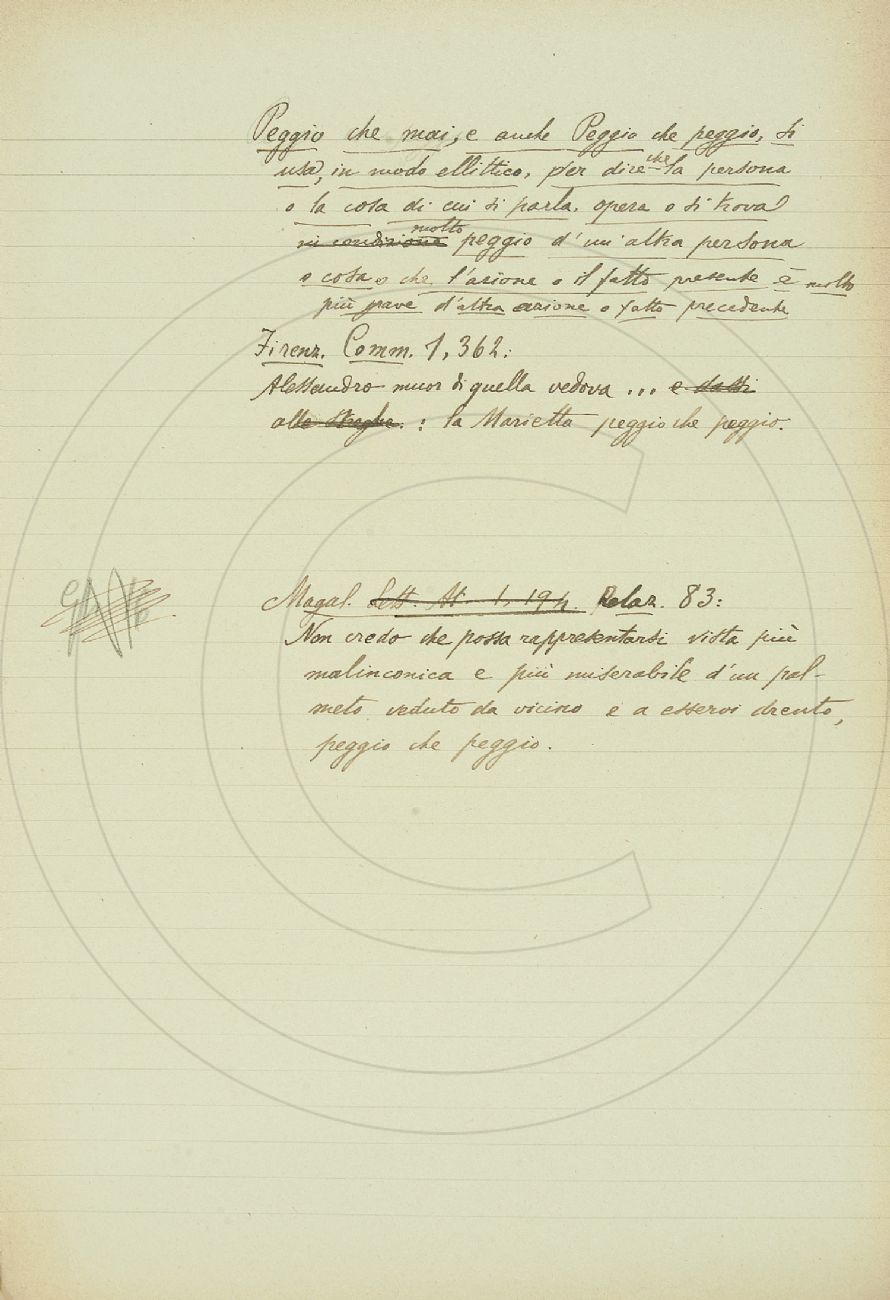 Peggio che mai, e anche Peggio che peggio, si
usa, in modo ellittico, per dire che la persona
o la cosa di cui si parla, opera o si trova
in condizione molto peggio d'un'altra persona
o cosa, o che l'azione o il fatto presente è molto
più grave d'altra azione o fatto precedente
Firenz. Comm. 1, 362:
Alessandro muor di quella vedova ... e dassi
alle streghe. : la Marietta peggio che peggio.
Magal. Lett. At. 1, 194. Relaz. 83:
Non credo che possa rappresentarsi vista più
malinconica e più miserabile d'un pal-
meto veduto da vicino e a esservi drento,
peggio che peggio.